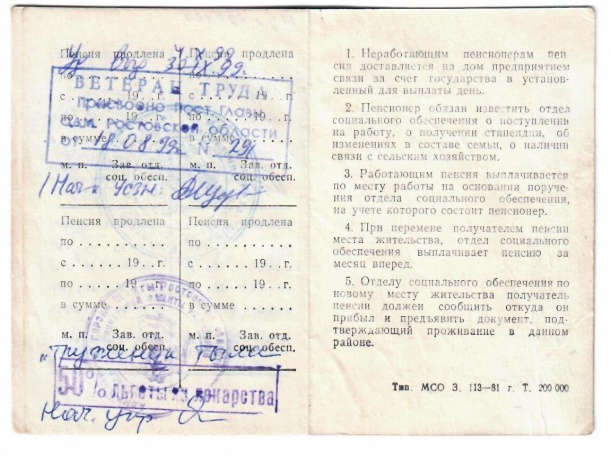 Пенсия продлена Пенсия продлена
ВЕТЕРАН ТРУДА
присвоено пост. Главы
Адм. Ростовской области
от 08.99г. N 291
в сумме
м. п. Зав. отд. м. п. Зав. отд.
соц. обесп. соц. обесп.
Пенсия продлена Пенсия продлена
по . . . . . . . . по . . . . . . . .
с . . . . 19 . . г. с . . . . 19 . . г.
по . . . . 19 . . г. по . . . . 19 . . г.
в сумме . . . . . в сумме . . . . .
м. п. Зав. отд. м. п. Зав. отд.
соц. обесп. соц. обесп.
„Труженик тыла"
50 % льготы на лекарства
Нач. упр
1. Неработающим пенсионерам пен-
сия доставляется на дом предприятием
связи за счет государства в установлен-
ный для выплаты день.
2. Пенсионер обязан известить отдел
социального обеспечения о поступлении
на работу, о получении стипендии, об
изменениях в составе семьи, о наличии
связи с сельским хозяйством.
3. Работающим пенсия выплачивается
по месту работы на основании поруче-
ния отдела социального обеспечения,
на учете которого состоит пенсионер.
4. При перемене получателем пенсии
места жительства, отдел социального
обеспечения выплачивает пенсию за
месяц вперед.
5. Отделу социального обеспечения по
новому месту жительства получатель
пенсии должен сообщить откуда он
прибыл и предъявить документ, под-
тверждающий проживание в данном
районе.
Тип. МСО З. 113—81 г. Т. 200 000